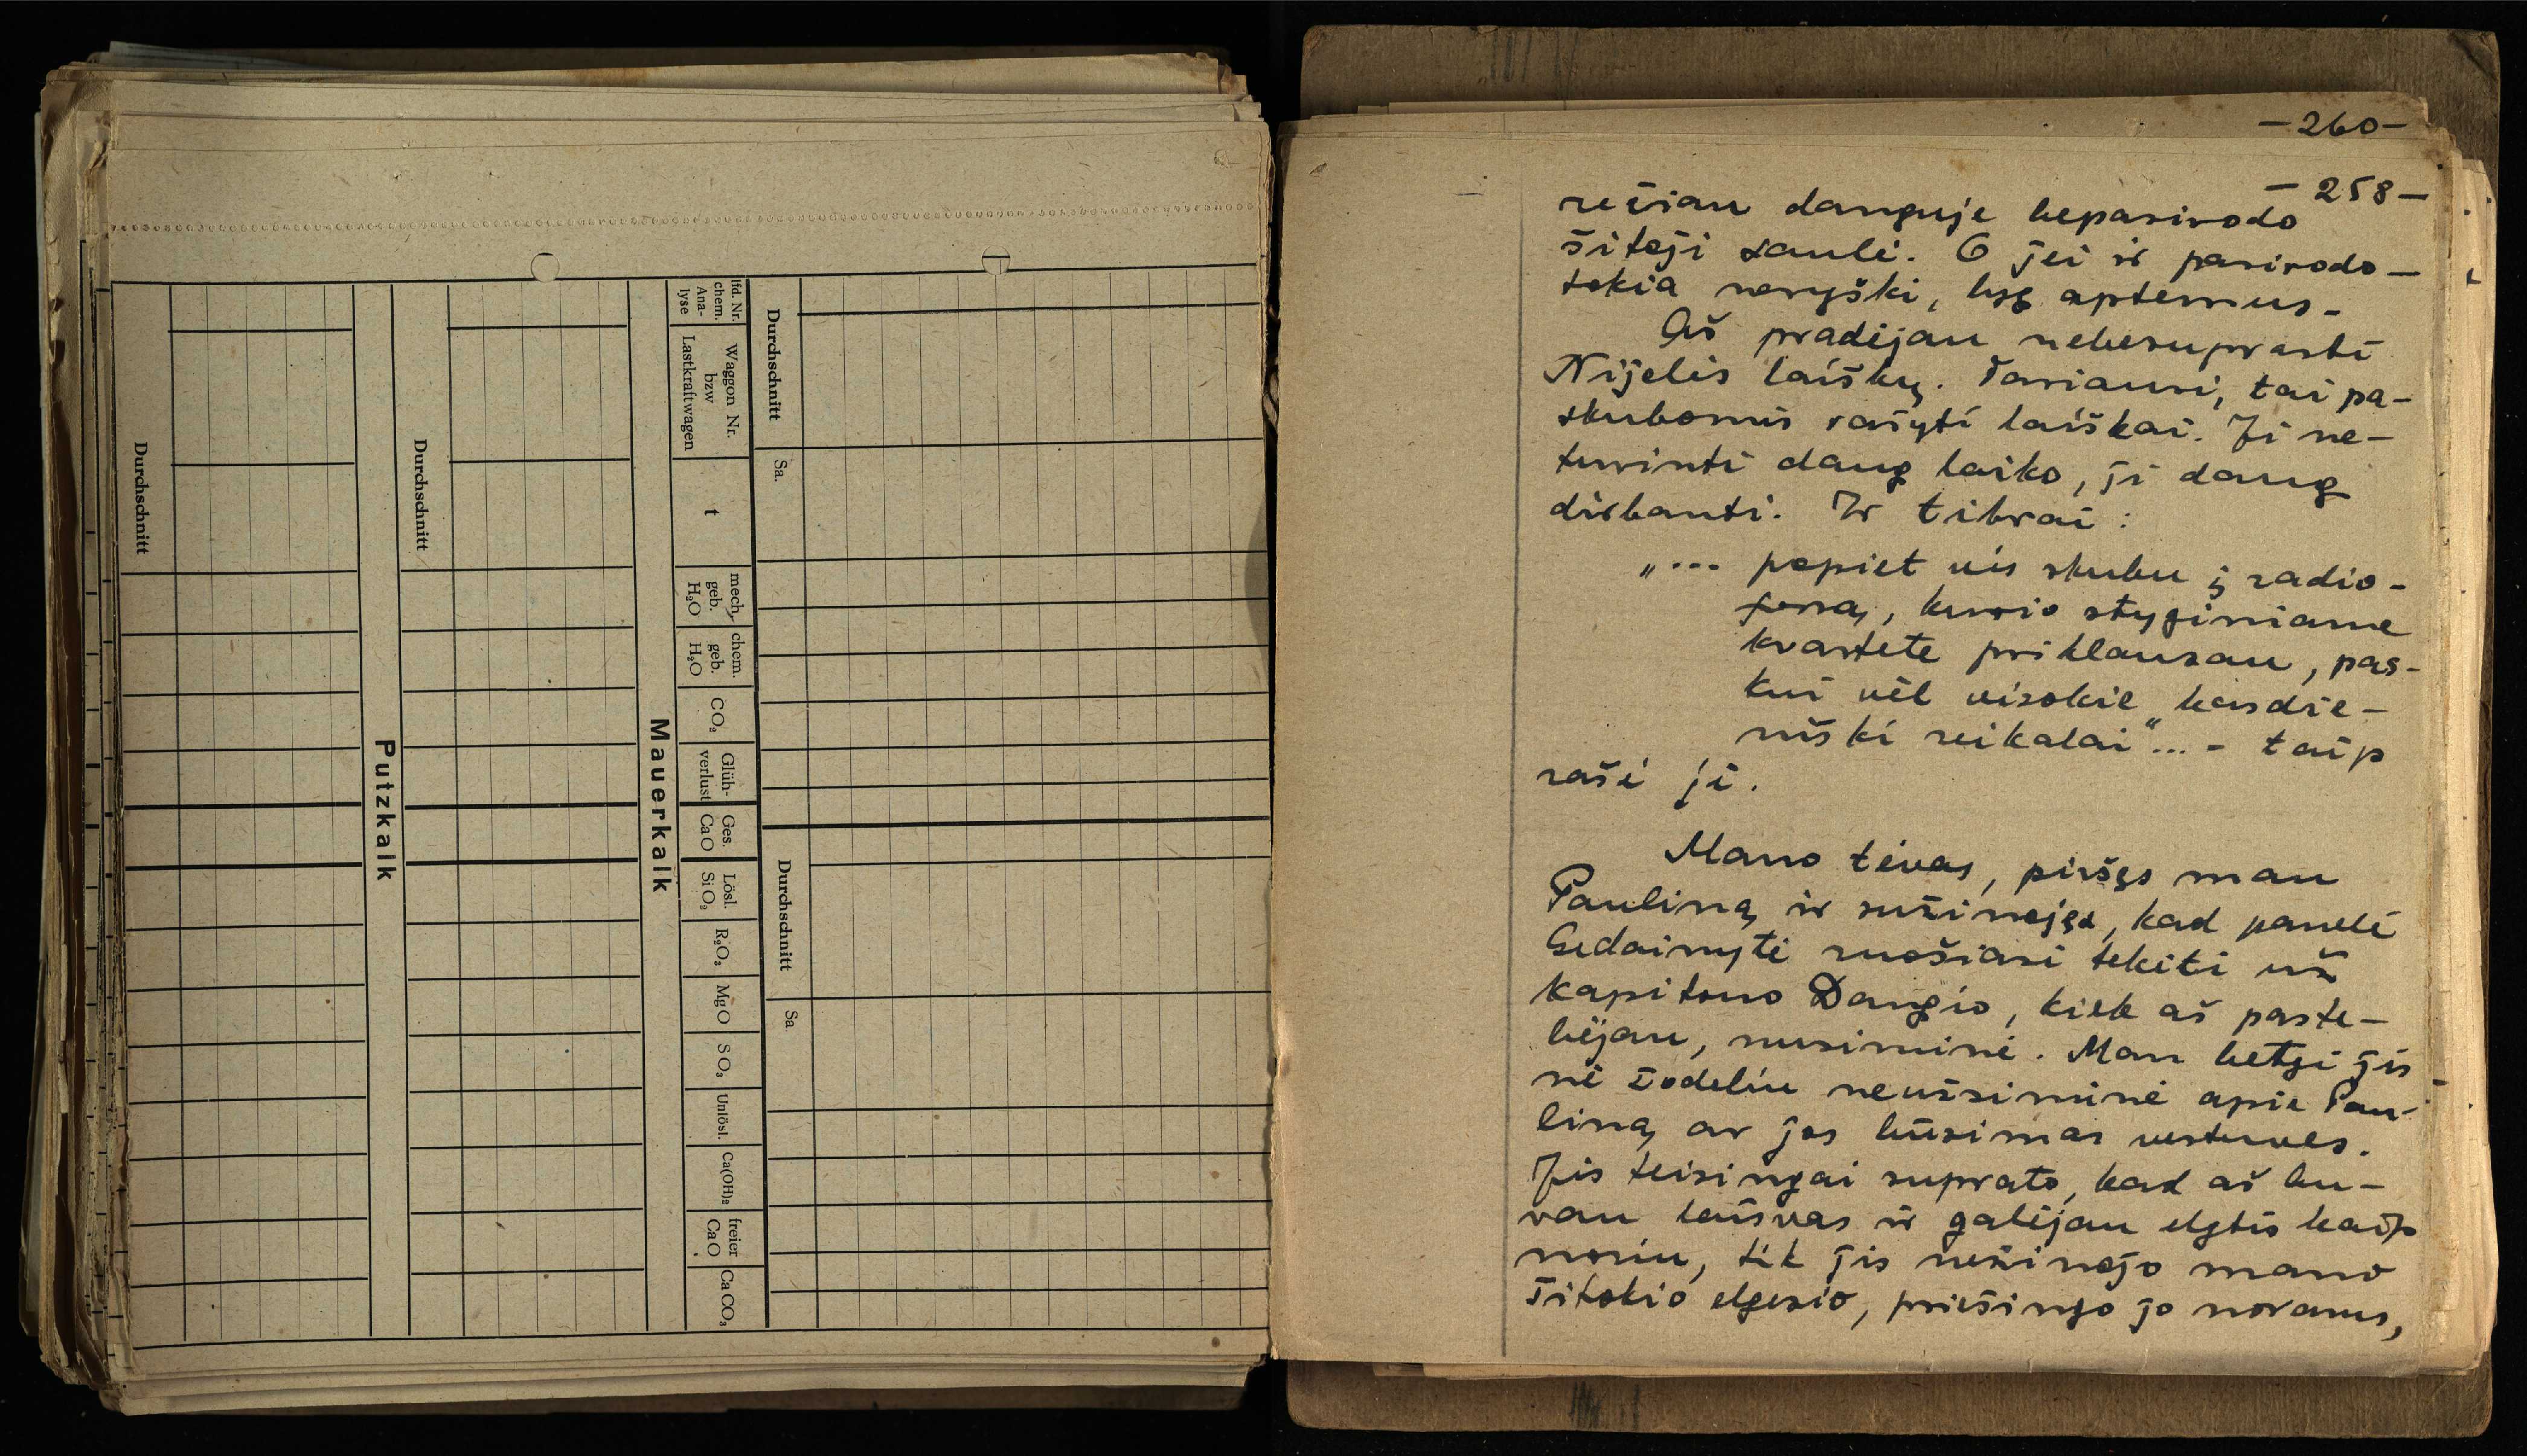 Durchschnitt
Putzkalk
Durchschnitt
Mauerkalk
lfd. Nr. chem. Ana- lyse
Waggon Nr. bzw Lastkraftwagen
t
mech. geb. H₂O
chem. geb. H₂O
CO₂
Glüh- verlust
Ges. CaO
Lösl. SiO₂
R₂O₃
MgO
SO₃
Unlösl.
Ca(OH)₂
freier CaO
CaCO₃
Durchschnitt
Sa.
Durchschnitt
Sa
—260—
—258—
rečiau danguje bepasirodo
šitoji saulė. O jei ir pasirodo—
tokia neryški, lyg aptemus.
Aš pradėjau nebesuprasti
Nijelės laiškų. Tariausi, tai pa-
skubomis rašyti laiškai. Ji ne-
turinti daug laiko, ji daug
dirbanti. Ir tikrai:
„... popiet vis skubu į radio-
foną, kurio styginiame
kvartete priklausau, pas-
kui vėl visokie kasdie-
niški reikalai“... - taip
rašė ji.
Mano tėvas, piršęs man
Pauliną ir sužinojęs, kad panelė
Gedainytė ruošiasi tekėti už
kapitono Dangio, kiek aš paste-
bėjau, nusiminė. Man betgi jis
nė žodeliu neužsiminė apie Pau-
liną ar jos būsimas vestuves.
Jis teisingai suprato, kad aš bu-
vau laisvas ir galėjau elgtis kaip
noriu, tik jis nežinojo mano
šitokio elgesio, priešingo jo norams,